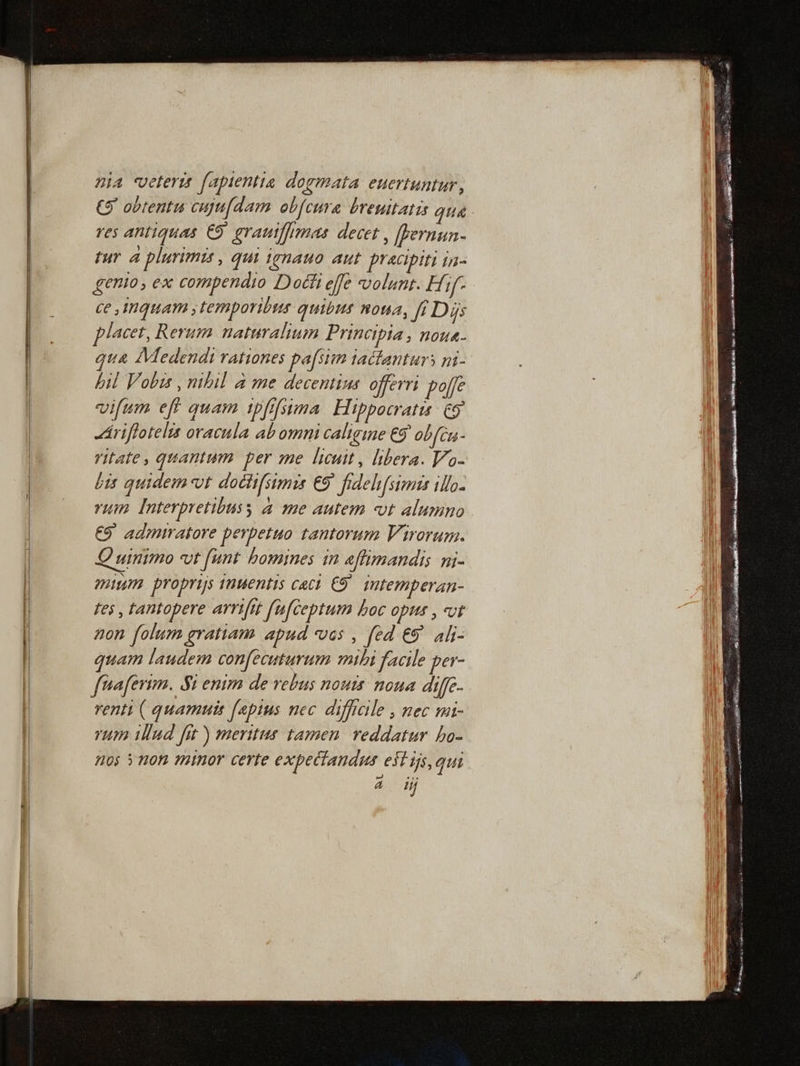 nia veteris ſapientiæ dogmata euertuntur,
& obtentu cujuſdam obſcuræ breuitatis quæ
res antiquas & grauiſſimas decet, ſpernun-
tur à plurimis, qui ignauo aut præcipiti in-
genio, ex compendio Docti eſſe volunt. Hiſ-
ce, inquam, temporibus quibus noua, ſi Dijs
placet, Rerum naturalium Principia, nouæ-
que Medendi rationes paſsim iactantur; ni-
hil Vobis, nihil à me decentius offerri poſſe
viſum eſt quam ipſiſsima Hippocratis &
Ariſtotelis oracula ab omni caligine & obſcu-
ritate, quantum per me licuit, libera. Vo-
bis quidem vt doctiſsimis & fideliſsimis illo-
rum Interpretibus; à me autem vt alumno
& admiratore perpetuo tantorum Virorum.
Quinimo vt ſunt homines in æſtimandis ni-
mium proprijs inuentis cæci & intemperan-
tes, tantopere arriſit ſuſceptum hoc opus, vt
non ſolum gratiam apud vos, ſed & ali-
quam laudem conſecuturum mihi facile per-
ſuaſerim. Si enim de rebus nouis noua diſſe-
renti (quamuis ſæpius nec difficile, nec mi-
rum illud ſit) meritus tamen reddatur ho-
nos; non minor certe expectandus eſt ijs, qui
a iij